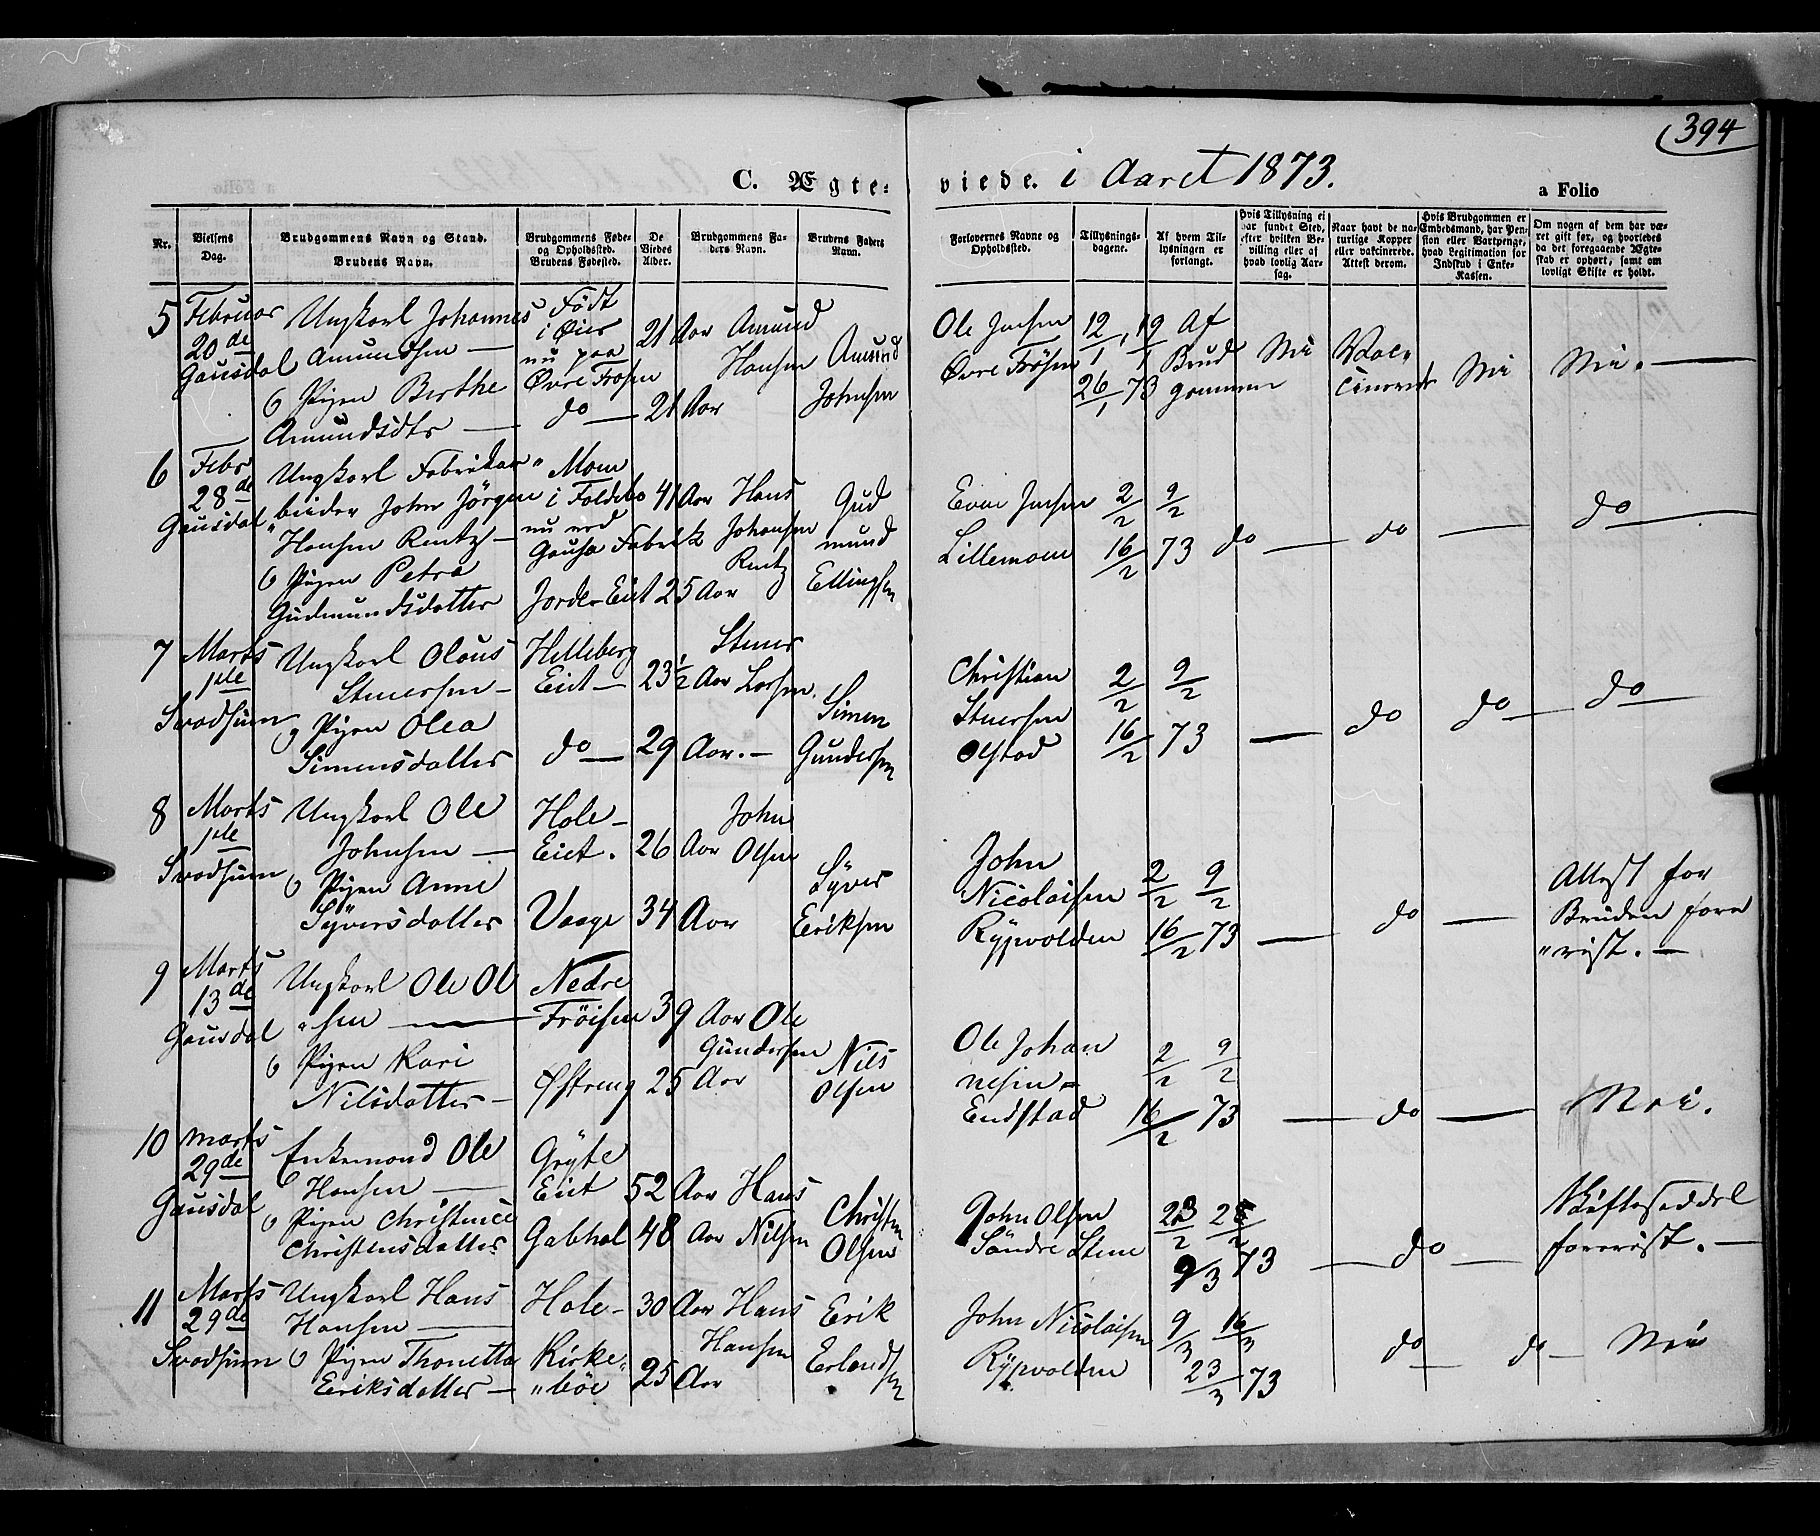 394
C. Ægteviede. i Aaret 1873.
a Folio
Nr.
Vielsens Dag.
Brudgommens Navn og Stand. Brudens Navn.
Brudgommens Føde- og Opholdssted. Brudens Fødested.
De Viedes Alder.
Brudgommens Faders Navn.
Brudens Faders Navn.
Forlovernes Navne og Opholdssted.
Tillysnings-dagene.
Af hvem Tillysningen er forlangt.
Hvis Tillysning ei har fundet Sted, efter hvilken Bevilling eller af hvad lovlig Aarsag.
Naar havt de naturlige Kopper eller vakcinerede. Attest derom.
Hvis Brudgommen er Embedsmand, har Pension eller Vartpenge, hvad Legitimation for Indskud i Enke-Kassen.
Om nogen af dem har været gift før, og hvorledes da det foregaaende Ægteskab er ophørt, samt om lovligt Skifte er holdt.
5 Februar 20de Gausdal
Ungkarl Johannes Amundsen —
o Pigen Berthe Amundsdtr —
Født i Øier nu paa Øvre Frösen
do —
21 Aar
21 Aar
Amund Hansen
Amund Johnsen
Ole Jensen Øvre Frösen
12/1, 19/1 26/1 73
Af Brudgommen
Nei
Vaccinerede
Nei
Nei. —
6 Febr 28de Gausdal
Ungkarl Fabrikarbeider John Jörgen Hansen Rentz —
o Pigen Petra Gudmundsdatter
Moen i Foldebo nu ved Gausa Fabrik
Jorde Eiet
41 Aar
25 Aar
Hans Johansen Rentz
Gudmund Ellingsen
Even Jensen Lillemoen
2/2 9/2 16/2 73
do — do — do —
7 Marts 1ste Svadsum
Ungkarl Olaus Stenersen —
o Pigen Olea Simensdatter
Helleberg Eiet —
do —
23 1/2 Aar
29 Aar. —
Stener Larsen.
Simen Gundersen
Christian Stenersen Olstad
2/2 9/2 16/2 73
— do do — do —
8 Marts 1ste Svadsum
Ungkarl Ole Johnsen —
o Pigen Anne Syversdatter
Hole — Eiet.
Vaage
26 Aar
34 Aar
John Olsen
Syver Eriksen
John Nicolaisen Rypvolden
2/2 9/2 16/2 73
— do —
Attest for Bruden forevist. —
9 Marts 13de Gausdal
Ungkarl Ole Olsen —
o Pigen Kari Nilsdatter —
Nedre Fröisen
Østreng
39 Aar
25 Aar
Ole Gundersen
Nils Olsen
Ole Johannesen — Endstad
2/2 9/2 16/2 73
— do — Nei.
10 Marts 29de Gausdal
Enkemand Ole Hansen —
o Pigen Christence Christensdatter
Gryte Eiet
Gabhol
52 Aar
48 Aar
Hans Nilsen
Christen Olsen
John Olsen Söndre Stene
23/2 2/3 73
— do —
Skifteseddel forevist. —
11 Marts 29de Svadsum
Ungkarl Hans Hansen —
o Pigen Thonette Eriksdatter —
Hole —
Kirkeböe
30 Aar
25 Aar
Hans Hansen
Erik Erlandsen
John Nicolaisen Rypvolden
9/3 16/3 23/3 73
do — do — Nei